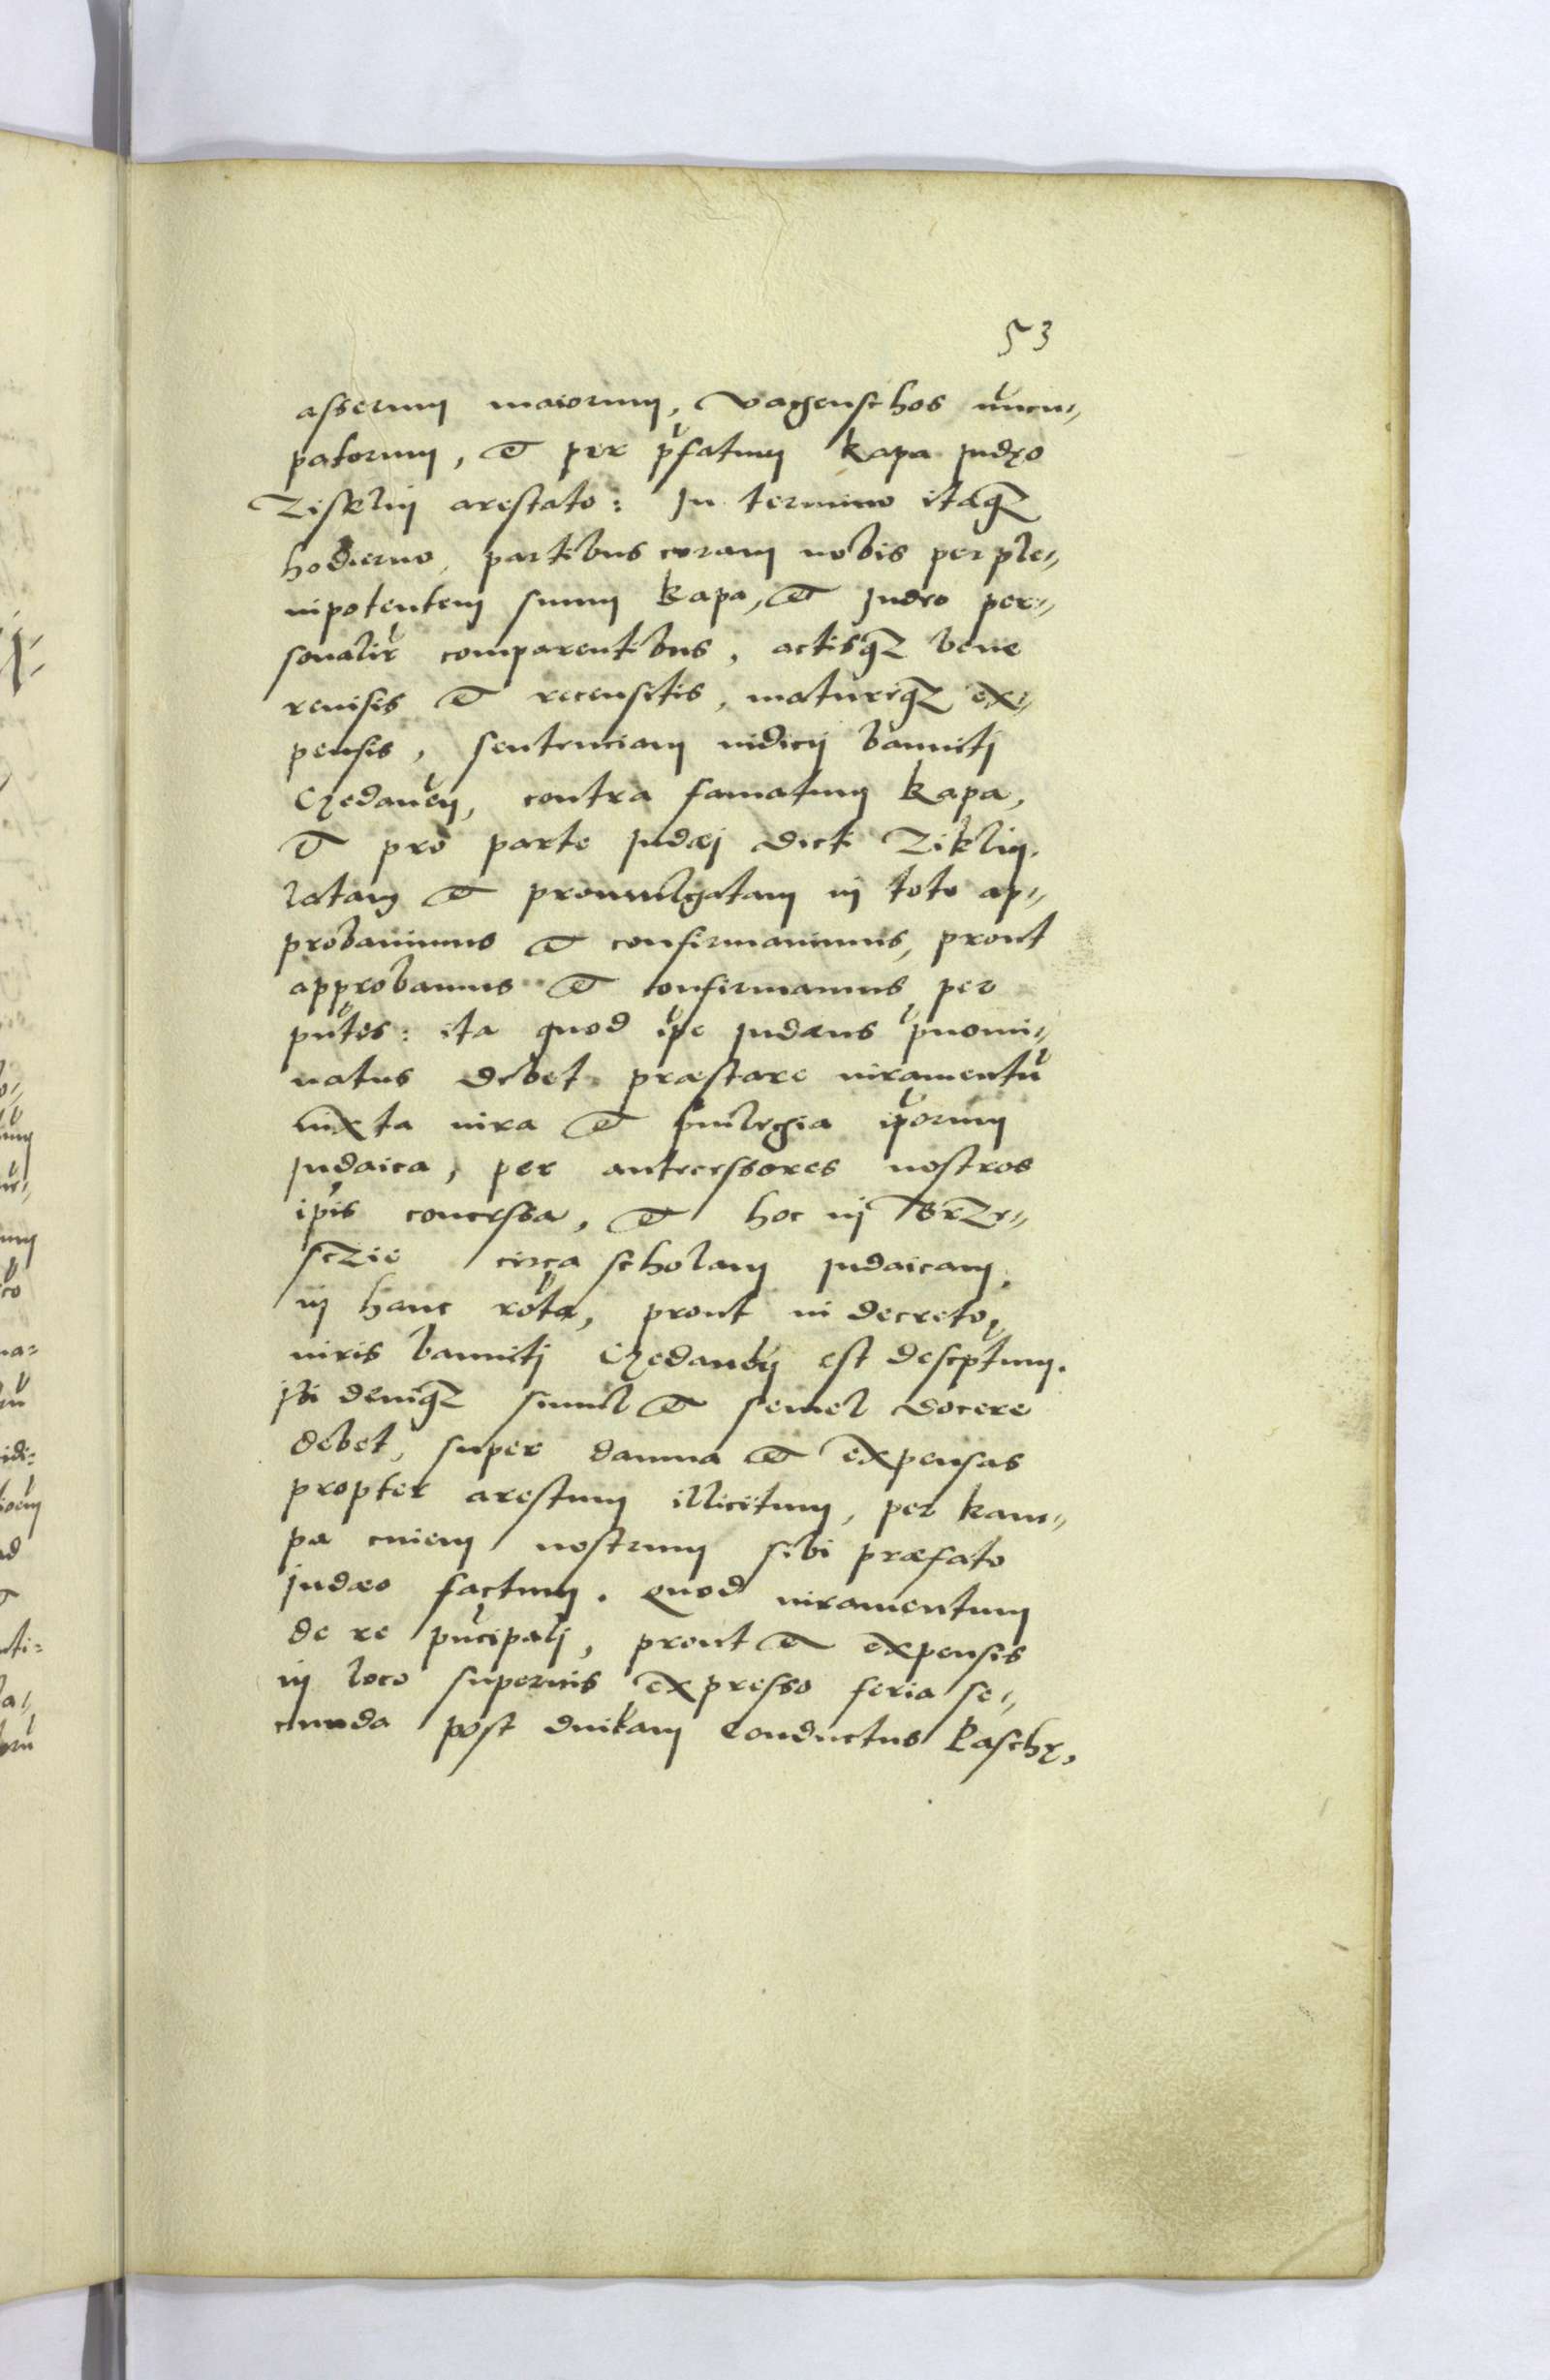 53
asserum maiorum, vagenschos nuncu-
patorum, et per pfatum kapa judęo
Zisklin arestato: In termino itaq
hodierno, partibus coram nobis per ple-
nipotentem suum kapa, et Judeo per-
sonalir comparentibus, actisq bene
reuisis et recensitis, maturiq ex-
pensis, sententiam iudicii banniti
Gedanen, contra famatum kapa,
et pro parte Judæi dicti Ziklin.
latam et promulgatam in toto ap-
probauimus et confirmauimus, prout
approbamus et confirmamus per
pntes: ita quod ipe Judæus pnomi-
natus debet præstare iuramentu
iuxta iura et priuilegia iporum
Judaica, per antecessores nostros
ipis concessa, et hoc in Brze-
sczie circa scholam Judaicam,
in hanc rota, prout in decreto
iuris banniti Gedanen est descptum.
Ibi deniq simul et semel docere
debet, super damna et expensas
propter arestum illicitum, per kam-
pa ciuem nostrum sibi præfato
Judæo factum. Quod iuramentum
de re pncipali, prout et expensis
in loco superius expresso feria se-
cunda post dnikam Conductus Paschę,